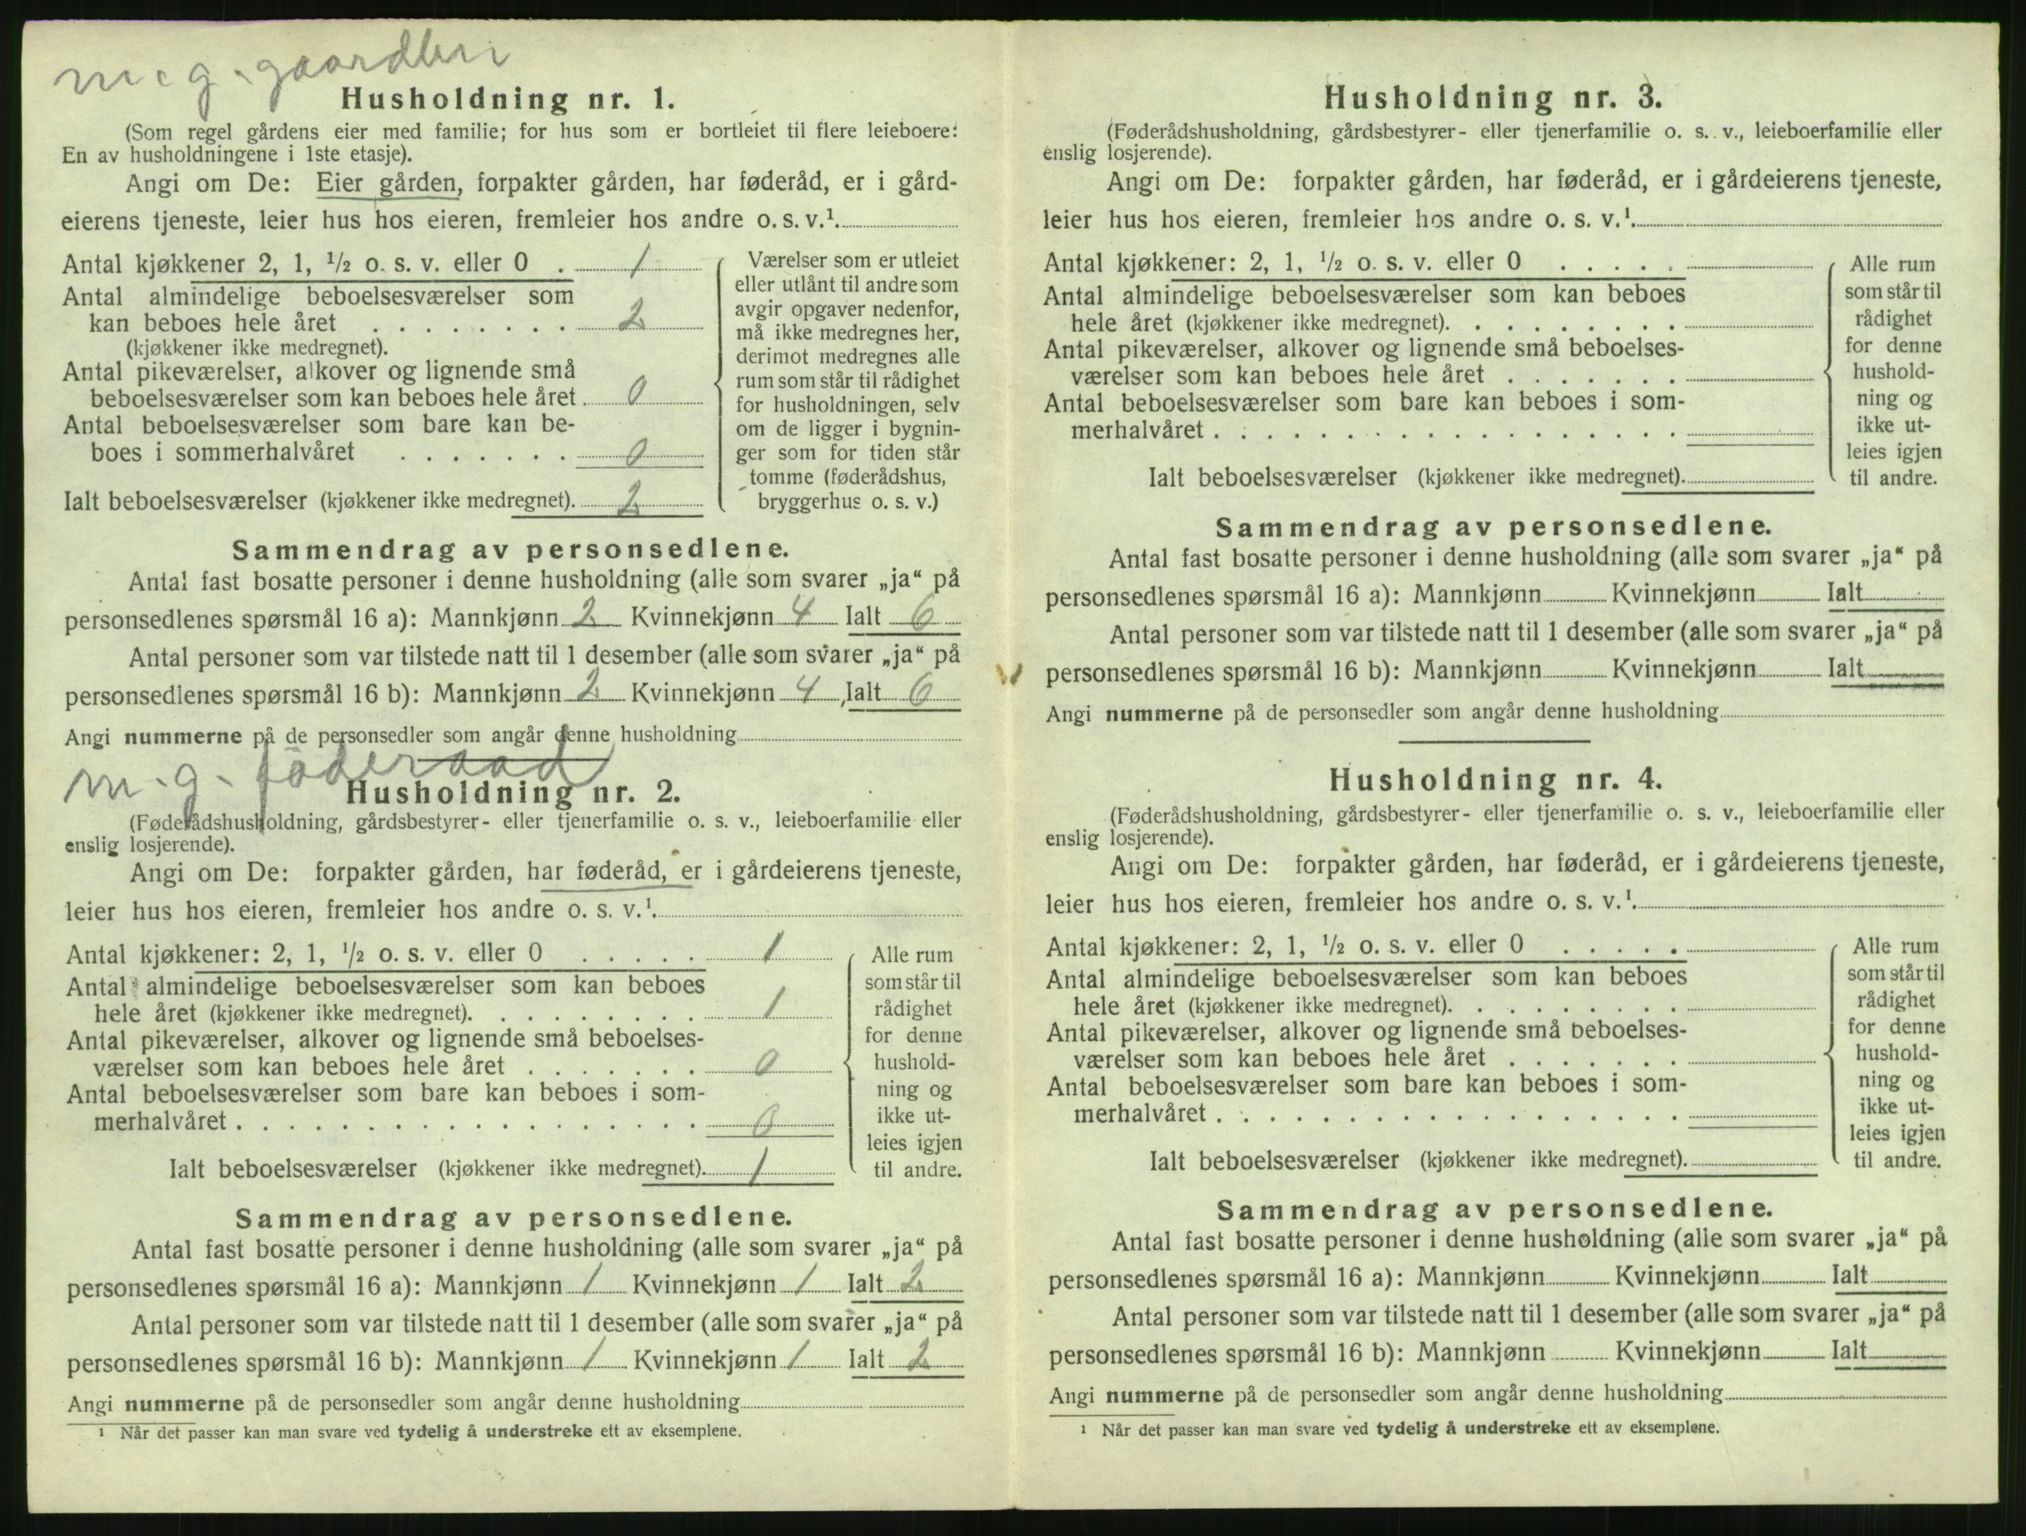 m. g. gaardbr
Husholdning nr. 1.
(Som regel gårdens eier med familie; for hus som er bortleiet til flere leieboere:
En av husholdningene i 1ste etasje).
Angi om De: Eier gården, forpakter gården, har føderåd, er i gård-
eierens tjeneste, leier hus hos eieren, fremleier hos andre o. s. v.¹.
Antal kjøkkener 2, 1, ½ o. s. v. eller 0 . 1
Antal almindelige beboelsesværelser som
kan beboes hele året . . . . . . . . 2
(kjøkkener ikke medregnet).
Antal pikeværelser, alkover og lignende små
beboelsesværelser som kan beboes hele året . 0
Antal beboelsesværelser som bare kan be-
boes i sommerhalvåret . . . . . . . 0
Ialt beboelsesværelser (kjøkkener ikke medregnet). 2
Værelser som er utleiet
eller utlånt til andre som
avgir opgaver nedenfor,
må ikke medregnes her,
derimot medregnes alle
rum som står til rådighet
for husholdningen, selv
om de ligger i bygnin-
ger som for tiden står
tomme (føderådshus,
bryggerhus o. s. v.)
Sammendrag av personsedlene.
Antal fast bosatte personer i denne husholdning (alle som svarer „ja“ på
personsedlenes spørsmål 16 a): Mannkjønn 2 Kvinnekjønn 4 Ialt 6
Antal personer som var tilstede natt til 1 desember (alle som svarer „ja“ på
personsedlenes spørsmål 16 b): Mannkjønn 2 Kvinnekjønn 4, Ialt 6
Angi nummerne på de personsedler som angår denne husholdning
m. g. föderaad
Husholdning nr. 2.
(Føderådshusholdning, gårdsbestyrer- eller tjenerfamilie o. s. v., leieboerfamilie eller
enslig losjerende).
Angi om De: forpakter gården, har føderåd, er i gårdeierens tjeneste,
leier hus hos eieren, fremleier hos andre o. s. v.¹.
Antal kjøkkener: 2, 1, ½ o. s. v. eller 0 . . . . . 1
Antal almindelige beboelsesværelser som kan beboes
hele året (kjøkkener ikke medregnet). . . . . . . . . 1
Antal pikeværelser, alkover og lignende små beboelses-
værelser som kan beboes hele året . . . . . . . 0
Antal beboelsesværelser som bare kan beboes i som-
merhalvåret . . . . . . . . . . . . . . . . . . 0
Ialt beboelsesværelser (kjøkkener ikke medregnet). 1
Alle rum
som står til
rådighet
for denne
hushold-
ning og
ikke ut-
leies igjen
til andre.
Sammendrag av personsedlene.
Antal fast bosatte personer i denne husholdning (alle som svarer „ja“ på
personsedlenes spørsmål 16 a): Mannkjønn 1 Kvinnekjønn 1 Ialt 2
Antal personer som var tilstede natt til 1 desember (alle som svarer „ja“ på
personsedlenes spørsmål 16 b): Mannkjønn 1 Kvinnekjønn 1 Ialt 2
Angi nummerne på de personsedler som angår denne husholdning
¹ Når det passer kan man svare ved tydelig å understreke ett av eksemplene.
Husholdning nr. 3.
(Føderådshusholdning, gårdsbestyrer- eller tjenerfamilie o. s. v., leieboerfamilie eller
enslig losjerende).
Angi om De: forpakter gården, har føderåd, er i gårdeierens tjeneste,
leier hus hos eieren, fremleier hos andre o. s. v.¹.
Antal kjøkkener: 2, 1, ½ o. s. v. eller 0 . . . . .
Antal almindelige beboelsesværelser som kan beboes
hele året (kjøkkener ikke medregnet). . . . . . . . .
Antal pikeværelser, alkover og lignende små beboelses-
værelser som kan beboes hele året . . . . . . .
Antal beboelsesværelser som bare kan beboes i som-
merhalvåret . . . . . . . . . . . . . . . . . .
Ialt beboelsesværelser (kjøkkener ikke medregnet).
Alle rum
som står til
rådighet
for denne
hushold-
ning og
ikke ut-
leies igjen
til andre.
Sammendrag av personsedlene.
Antal fast bosatte personer i denne husholdning (alle som svarer „ja“ på
personsedlenes spørsmål 16 a): Mannkjønn Kvinnekjønn Ialt
Antal personer som var tilstede natt til 1 desember (alle som svarer „ja“ på
personsedlenes spørsmål 16 b): Mannkjønn Kvinnekjønn Ialt
Angi nummerne på de personsedler som angår denne husholdning
Husholdning nr. 4.
(Føderådshusholdning, gårdsbestyrer- eller tjenerfamilie o. s. v., leieboerfamilie eller
enslig losjerende).
Angi om De: forpakter gården, har føderåd, er i gårdeierens tjeneste,
leier hus hos eieren, fremleier hos andre o. s. v.¹.
Antal kjøkkener: 2, 1, ½ o. s. v. eller 0 . . . . .
Antal almindelige beboelsesværelser som kan beboes
hele året (kjøkkener ikke medregnet). . . . . . . . .
Antal pikeværelser, alkover og lignende små beboelses-
værelser som kan beboes hele året . . . . . . .
Antal beboelsesværelser som bare kan beboes i som-
merhalvåret . . . . . . . . . . . . . . . . . .
Ialt beboelsesværelser (kjøkkener ikke medregnet).
Alle rum
som står til
rådighet
for denne
hushold-
ning og
ikke ut-
leies igjen
til andre.
Sammendrag av personsedlene.
Antal fast bosatte personer i denne husholdning (alle som svarer „ja“ på
personsedlenes spørsmål 16 a): Mannkjønn Kvinnekjønn Ialt
Antal personer som var tilstede natt til 1 desember (alle som svarer „ja“ på
personsedlenes spørsmål 16 b): Mannkjønn Kvinnekjønn Ialt
Angi nummerne på de personsedler som angår denne husholdning
¹ Når det passer kan man svare ved tydelig å understreke ett av eksemplene.